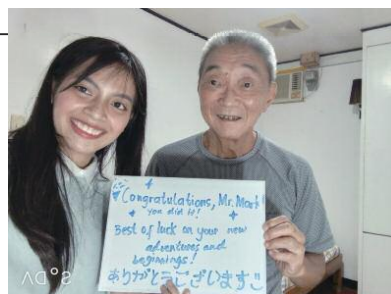 Congratulations, Mr. Mori!
You did it!
Best of luck on your new
adventures and
beginnings!
ありがとうございます!!